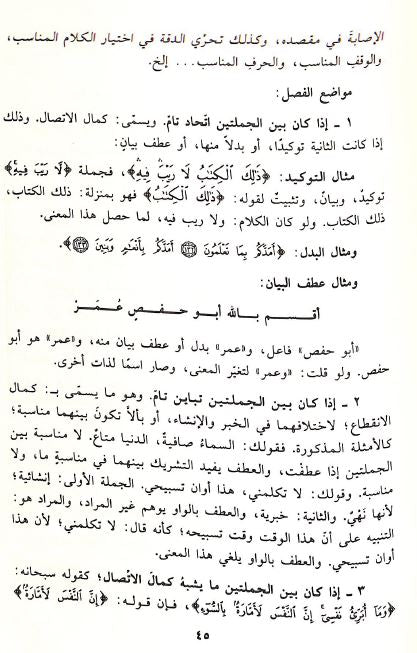 الإصابةَ في مقصده، وكذلك تحرّي الدقة في اختيار الكلام المناسب،
والوقف المناسب، والحرف المناسب... إلخ.
مواضع الفصل:
١ ـ إذا كان بين الجملتين اتّحاد تامّ. ويسمّى: كمال الاتصال. وذلك
إذا كانت الثانية توكيدًا، أو بدلاً منها، أو عطف بيان:
مثال التوكيد: ﴿ذَٰلِكَ ٱلْكِتَٰبُ لَا رَيْبَ ۛ فِيهِ﴾، فجملة ﴿لَا رَيْبَ فِيهِ﴾
توكيد، وبيان، وتثبيت لقوله: ﴿ذَٰلِكَ ٱلْكِتَٰبُ﴾ فهو بمنزلة: ذلك الكتاب،
ذلك الكتاب. ولو كان الكلام: ولا ريب فيه، لما حصل هذا المعنى.
ومثال البدل: ﴿أَمَدَّكُم بِمَا تَعْلَمُونَ ١٣٢ أَمَدَّكُم بِأَنْعَٰمٍ وَبَنِينَ ١٣٣﴾.
ومثال عطف البيان:
أقسم بالله أبو حفصٍ عُمَرْ
«أبو حفص» فاعل، و«عمر» بدل أو عطف بيان منه، و«عمر» هو أبو
حفص. ولو قلت: «وعمر» لتغيّر المعنى، وصار اسمًا لذات أخرى.
٢ ـ إذا كان بين الجملتين تباين تامّ. وهو ما يسمّى بـ: كمال
الانقطاع؛ لاختلافهما في الخبر والإنشاء، أو بألاّ تكونَ بينهما مناسبة؛
كالأمثلة المذكورة. فقولك: السماءُ صافيةٌ، الدنيا متاعٌ. لا مناسبة بين
الجملتين إذا عطفْت، والعطف يفيد التشريك بينهما في مناسبةٍ ما، ولا
مناسبة. وقولك: لا تكلمني، هذا أوان تسبيحي. الجملة الأولى: إنشائية؛
لأنها نَهْيٌ. والثانية: خبرية، والعطف بالواو يوهم غير المراد، والمراد هو:
التنبيه على أنّ هذا الوقت وقت تسبيحه؛ كأنه قال: لا تكلمني؛ لأن هذا
أوان تسبيحي. والعطف بالواو يلغي هذا المعنى.
٣ ـ إذا كان بين الجملتين ما يشبهُ كمالَ الاتّصال؛ كقوله سبحانه:
﴿وَمَا أُبَرِّئُ نَفْسِي إِنَّ النَّفْسَ لَأَمَّارَةٌ بِالسُّوءِ﴾، فإن قوله: ﴿إِنَّ النَّفْسَ لَأَمَّارَةٌ﴾
٤٥